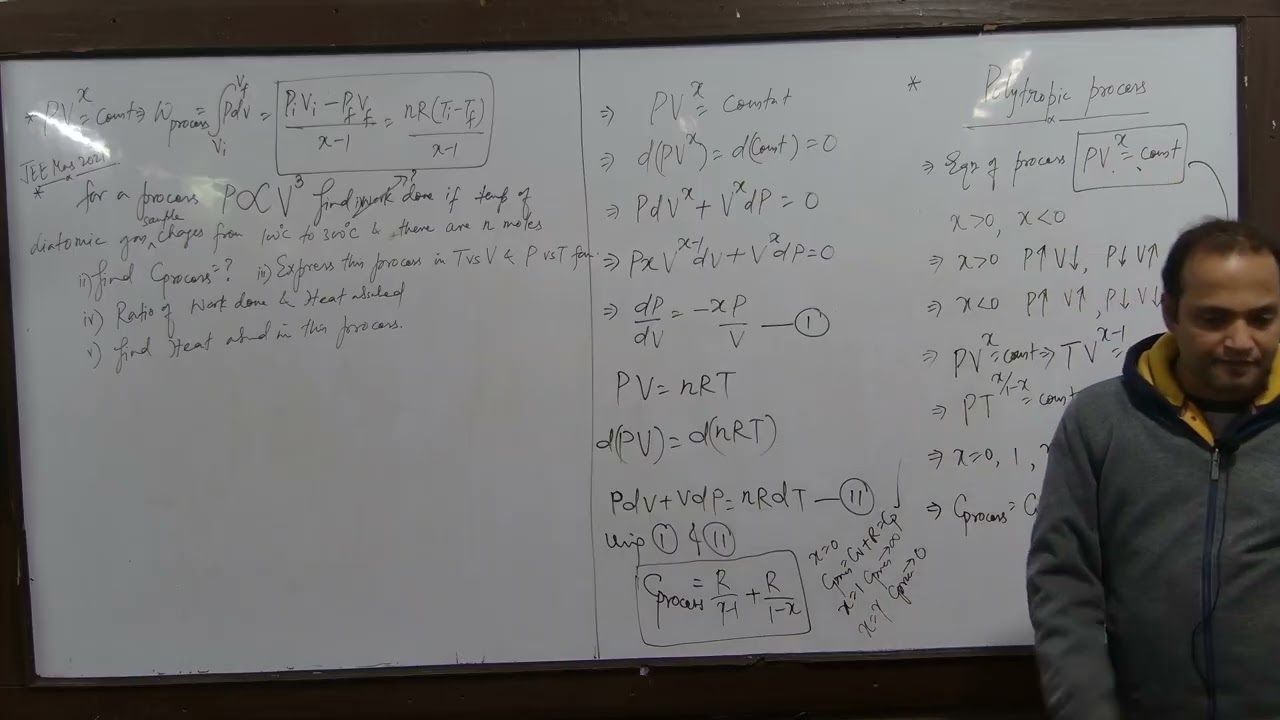 * PV^x = const ⇒ W_process = ∫_{Vi}^{Vf} Pdv = (PiVi − PfVf)/(x−1) = nR(Ti−Tf)/(x−1)
JEE Mas 2021
* for a process P∝V^3 find i) work done if temp of
diatomic gas sample chages from 100°C to 300°C & there are n moles
ii) find Cprocess=? iii) Express this process in T vs V & P vs T
iv) Ratio of work done & Heat
v) find Heat in this process.
⇒ PV^x = constant
⇒ d(PV^x) = d(Const) = 0
⇒ PdV^x + V^x dP = 0
⇒ PxV^{x-1}dV + V^x dP = 0
⇒ dP/dV = −xP/V — (I)
PV = nRT
d(PV) = d(nRT)
PdV + VdP = nRdT — (II)
Using (I) & (II)
Cprocess = R/(γ−1) + R/(1−x)
x=0
Cproces = Cv+R = Cp
x=1 Cproces→∞
x=γ Cproces→0
* Polytropic process
⇒ Eqn of process PV^x = const
x>0, x<0
⇒ x>0 P↑ V↓, P↓ V↑
⇒ x<0 P↑ V↑, P↓ V↓
⇒ PV^x = const ⇒ TV^{x-1} =
⇒ PT^{x/1-x} = const
⇒ x=0, 1,
⇒ Cprocess = C